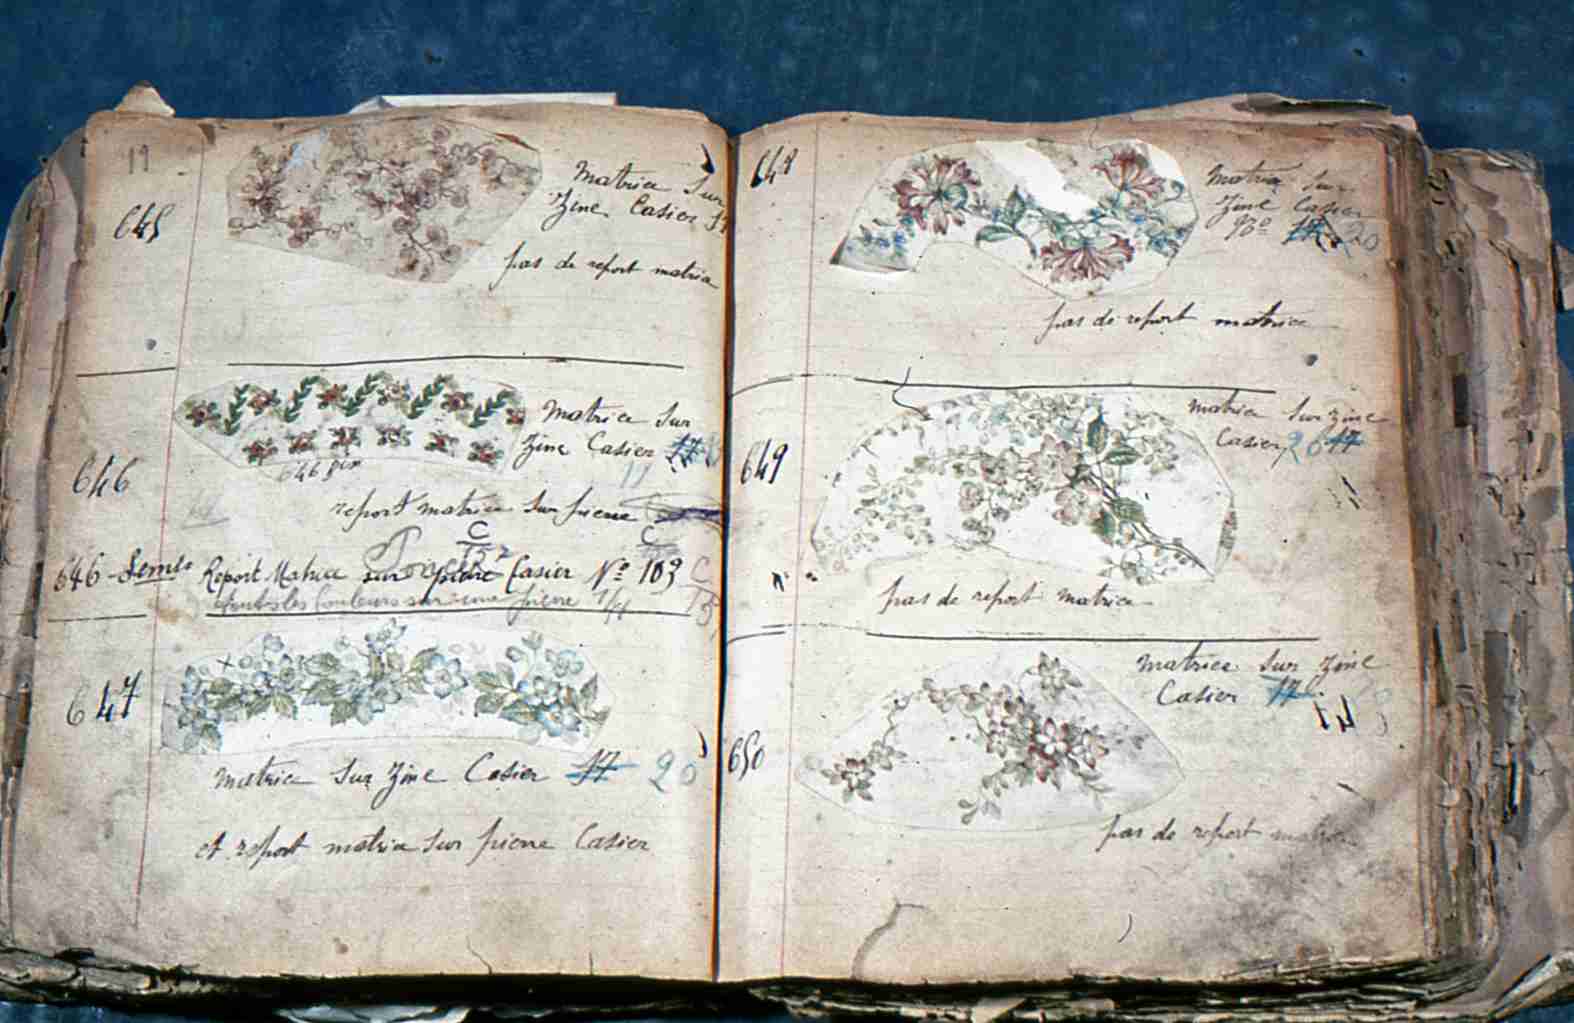 19
645
Matrice Sur
Zinc Casier
pas de report matrice
646
Matrice Sur
Zinc Casier 17
19
646 gum
report matrice sur pierre
C
646 - Semis Report Matrice sur pierre Casier Nº 103 C
toutes les Couleurs sur une pierre 1/4 15
647
Matrice Sur Zinc Casier 17 20
et report matrice sur pierre Casier
648
Matrice Sur
Zinc Casier
17 20
pas de report matrice
649
Matrice Sur Zinc
Casier 20 17
pas de report matrice
650
Matrice Sur Zinc
Casier 17
pas de report matrice